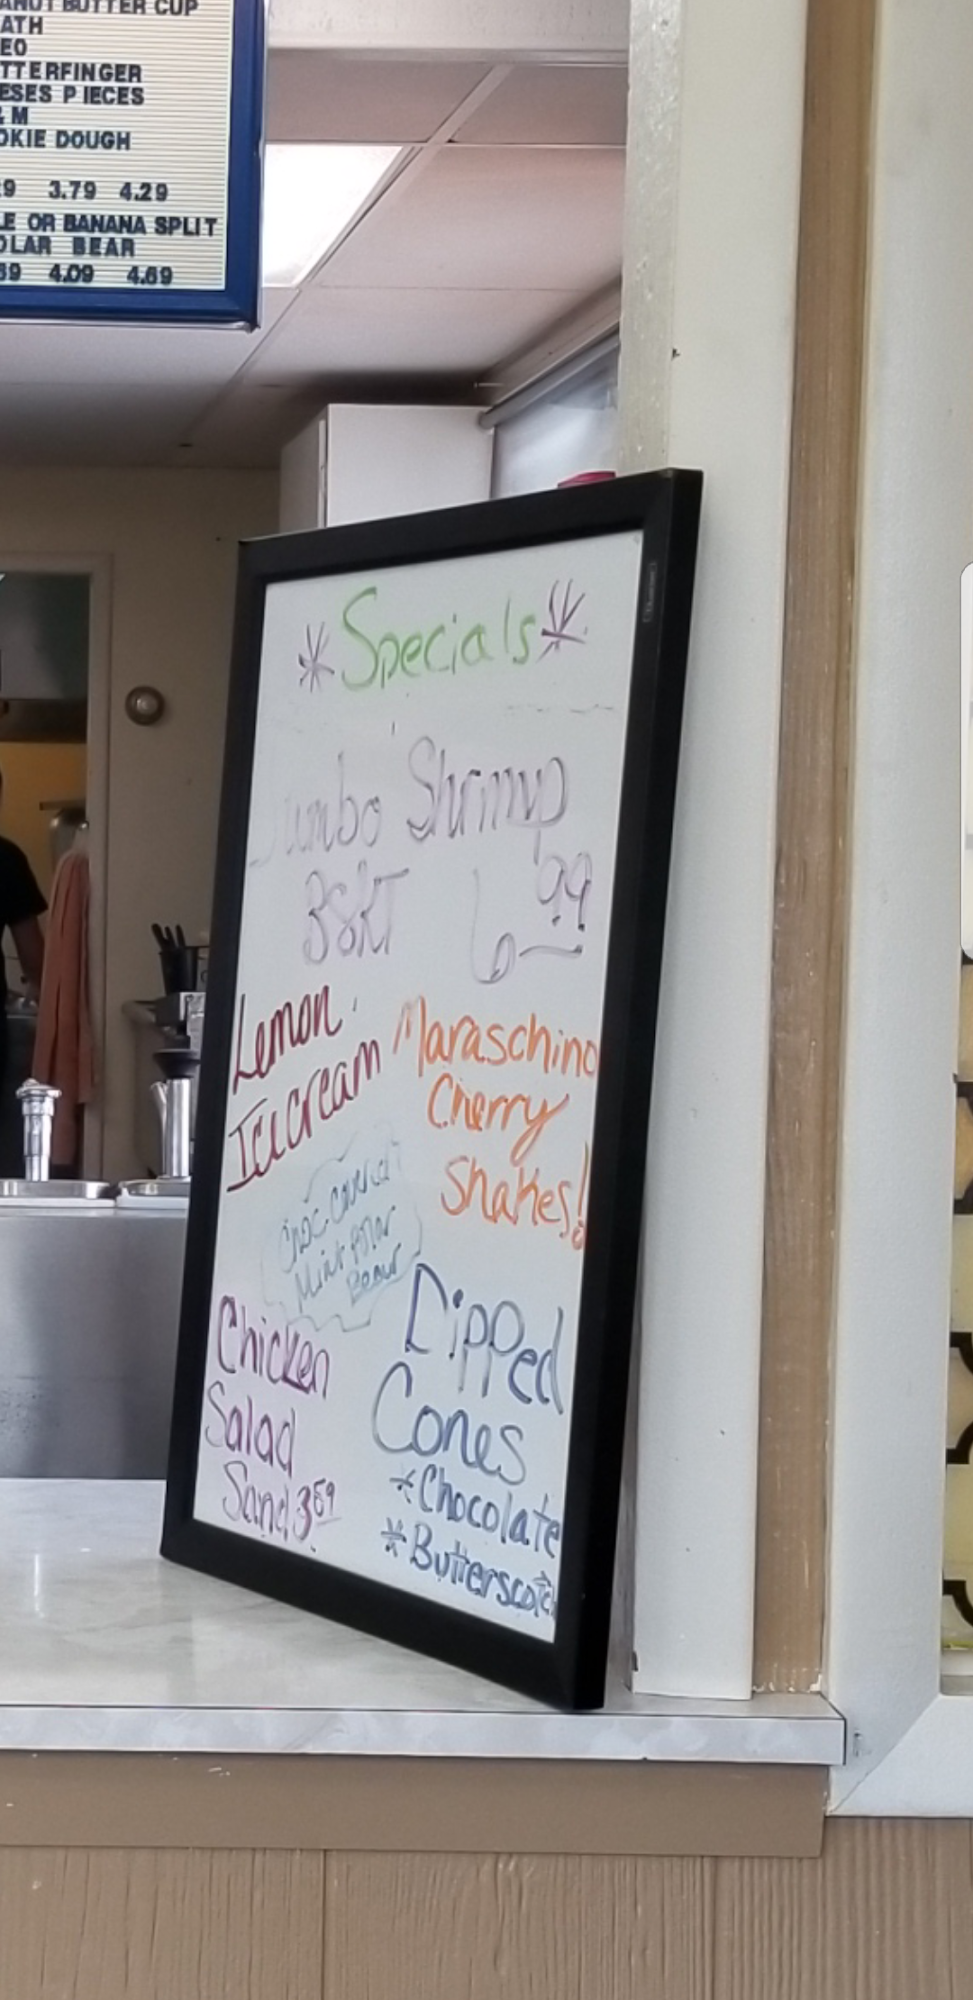 ANUT BUTTER CUP
ATH
EO
TTERFINGER
ESES PIECES
& M
OKIE DOUGH
9 3.79 4.29
LE OR BANANA SPLIT
OLAR BEAR
69 4.09 4.69
*Specials*
Jumbo Shrimp
BSKT 6.99
Lemon
Icecream
Maraschino
Cherry
Shakes!
Choc. Covered
Mint Polar
Bear
Chicken
Salad
Sand 3.59
Dipped
Cones
*Chocolate
*Butterscotch